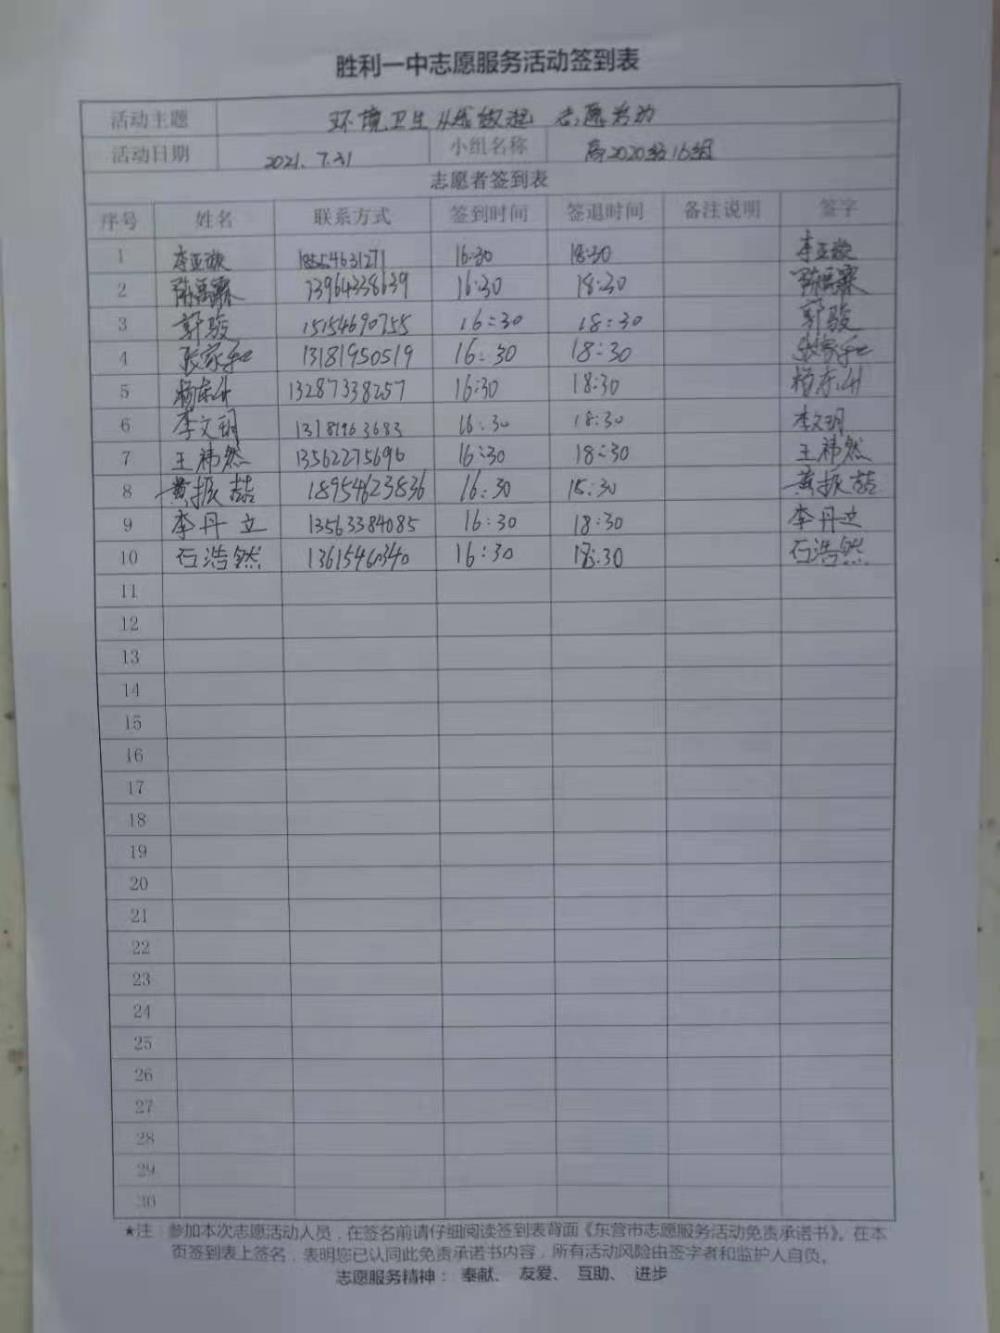 胜利一中志愿服务活动签到表
活动主题 环境卫生从我做起 志愿劳动
活动日期 2021.7.31 小组名称 高2020级16组
志愿者签到表
序号 姓名 联系方式 签到时间 签退时间 备注说明 签字
1 李亚 18554631271 16:30 18:30 李亚
2 13964338639 16:30 18:30
3 郭骏 15154690755 16:30 18:30 郭骏
4 张家和 13181950519 16:30 18:30 张家和
5 杨东 13287338257 16:30 18:30 杨东
6 李文玥 16:30 18:30 李文玥
7 王祎然 13562275696 16:30 18:30 王祎然
8 黄振喆 18954623836 16:30 18:30 黄振喆
9 李丹立 13563384085 16:30 18:30 李丹立
10 石浩然 13615460340 16:30 18:30 石浩然
11
12
13
14
15
16
17
18
19
20
21
22
23
24
25
26
27
28
29
30
★注：参加本次志愿活动人员，在签名前请仔细阅读签到表背面《东营市志愿服务活动免责承诺书》。在本
页签到表上签名，表明您已认同此免责承诺书内容，所有活动风险由签字者和监护人自负。
志愿服务精神：奉献、友爱、互助、进步